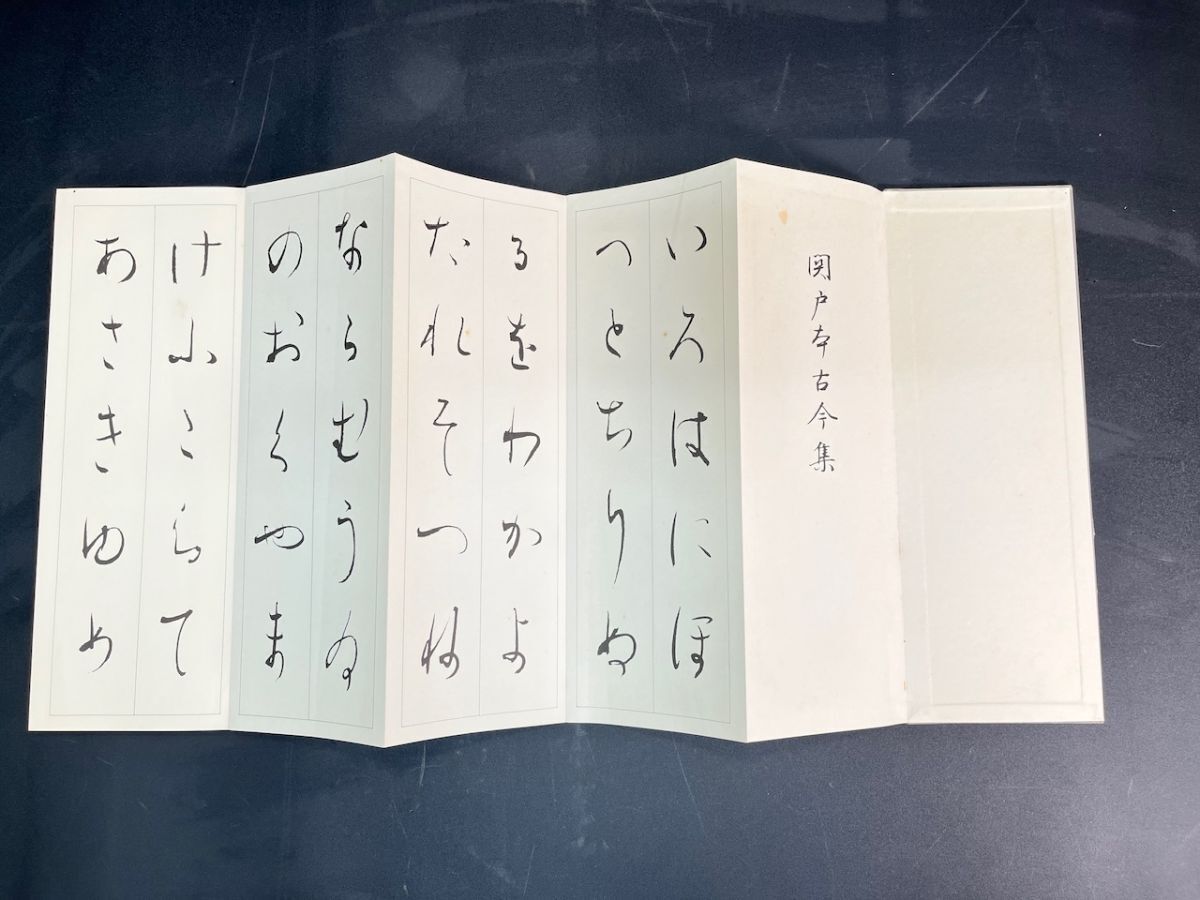 関戸本古今集
いろはにほ
へとちりぬ
るをわかよ
たれそつね
ならむうゐ
のおくやま
けふこえて
あさきゆめ